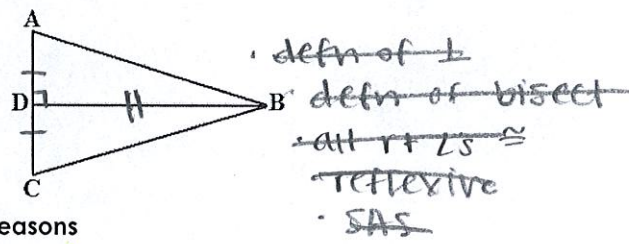 A
· defn of ⊥
D
B
· defn of bisect
· all rt ∠s ≅
· reflexive
C
· SAS
easons